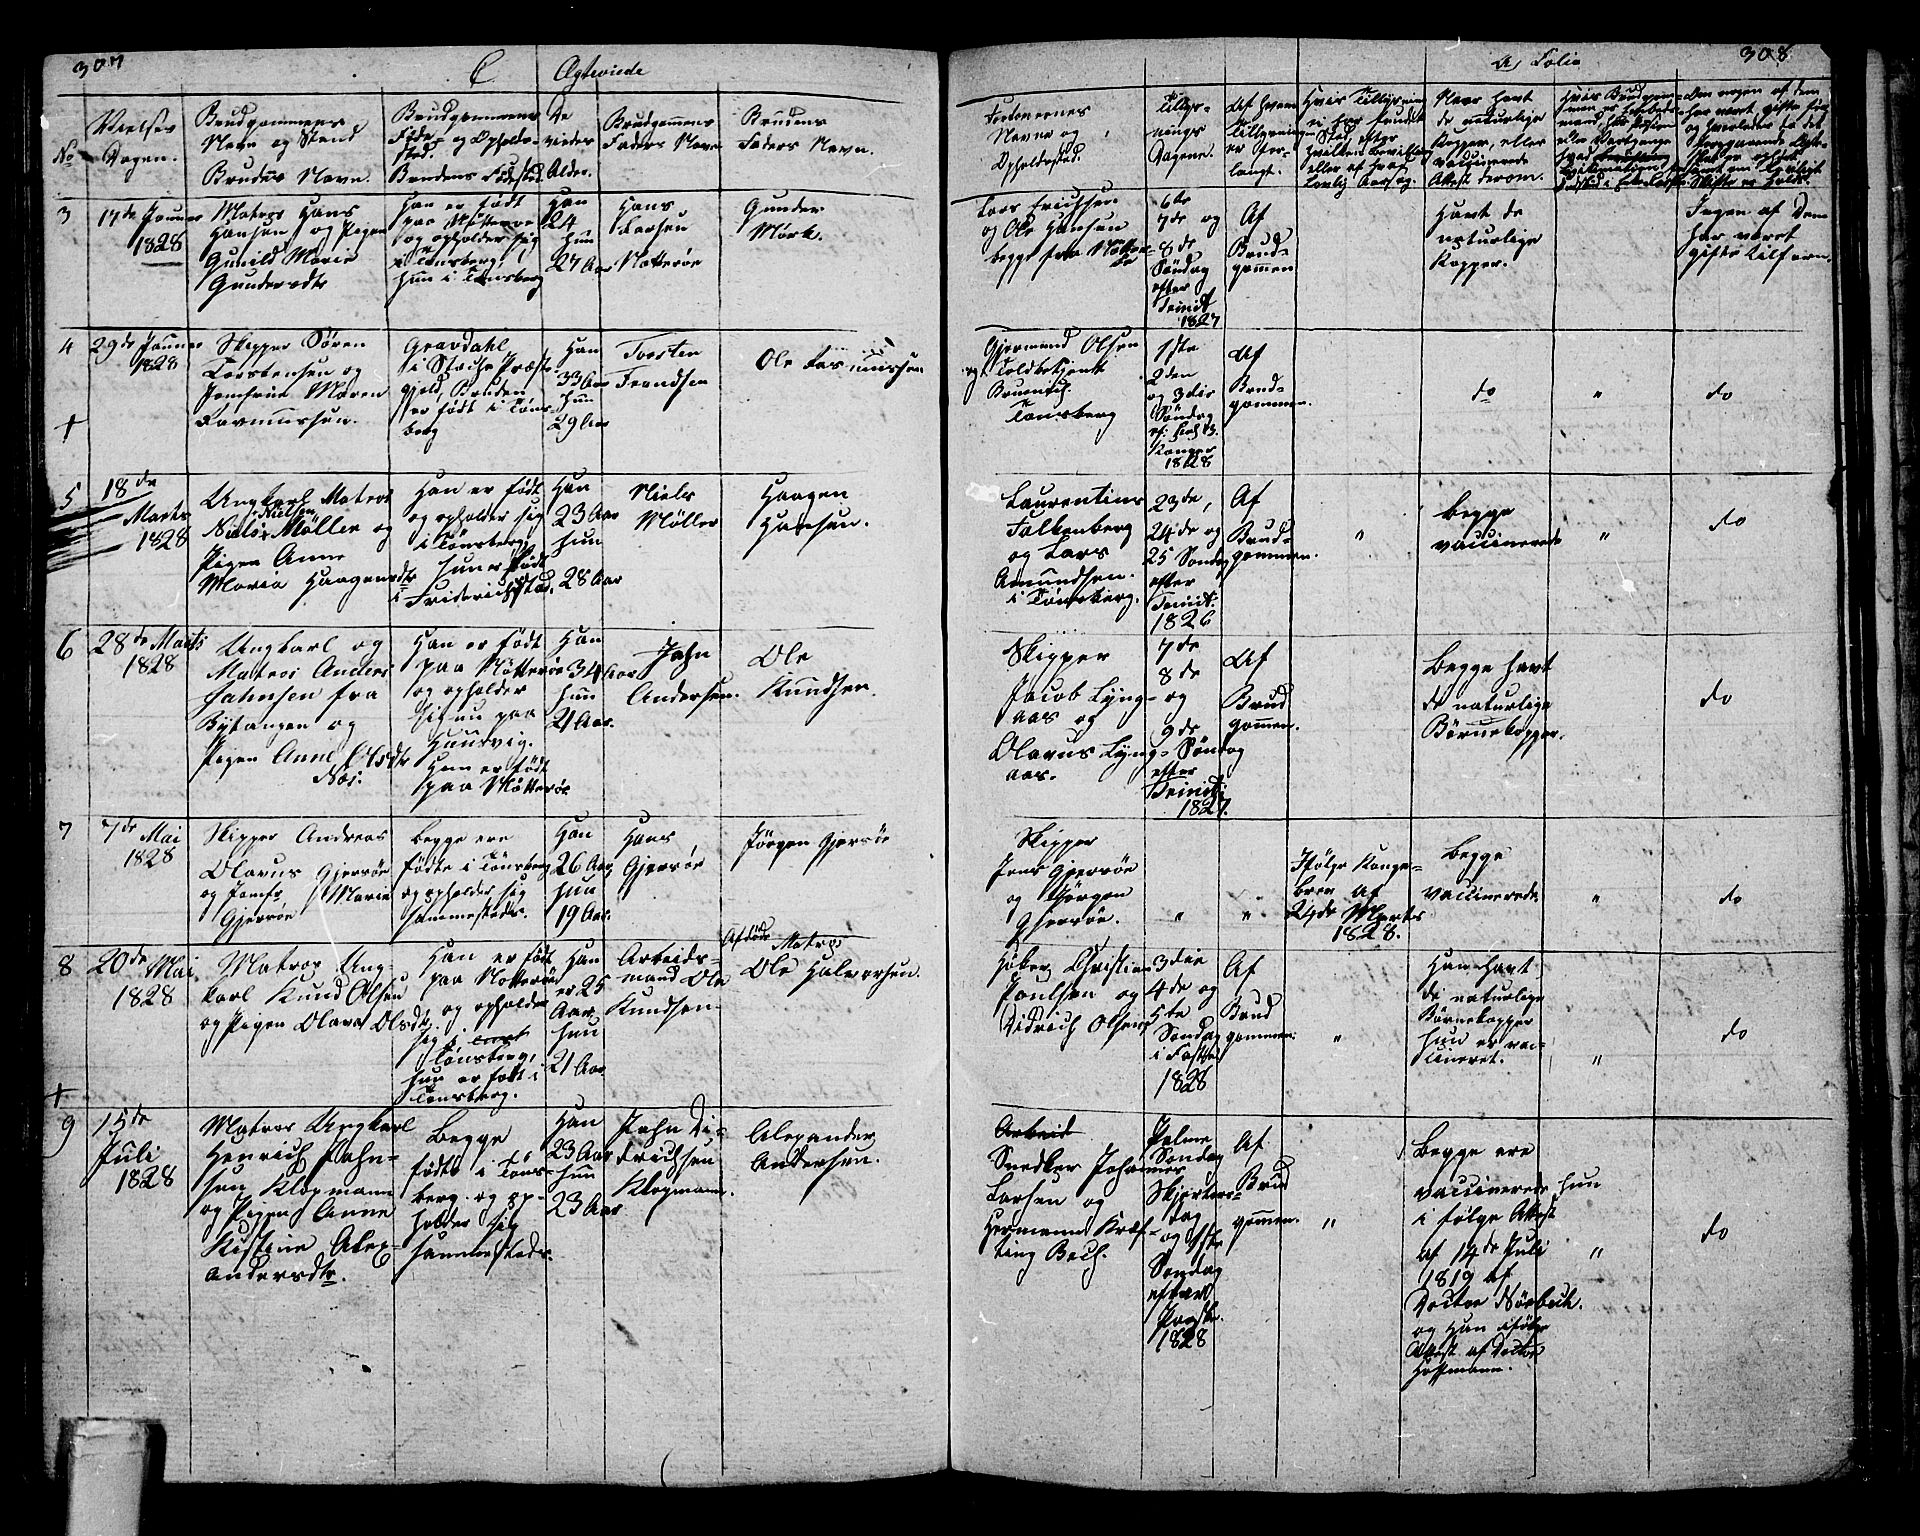 307
C
Ægteviede
No
Vielses
Dagen.
Brudgommens
Navn og Stand
Brudens Navn.
Brudgommens
Føde- og Opholds-
sted.
Brudens Fødested.
De
viedes
Alder.
Brudgommens
Faders Navn
Brudens
Faders Navn.
3
17de Januar
1828
Matros Hans
Hansen og Pigen
Gunild Marie
Gundersdtr
Han er født
paa Nøtterøe
og opholder sig
i Tønsberg,
hun i Tønsberg
Han
24
hun
27 Aar
Hans
Larsen
Nøtterøe
Gunder
Mørk.
4
29de Januar
1828
Skipper Søren
Torstensen og
Jomfrue Maren
Rasmussen.
Gravdahl
i Stocke Præste
gjeld, Bruden
er født i Tøns-
berg
Han
33 Aar
hun
29 Aar
Torsten
Frandsen
Ole Rasmussen
+
5
18de
Marts
1828
Ungkarl Matros
Nielsen
Niels Møller og
Pigen Anne
Maria Haagensdtr
Han er født
og opholder sig
i Tønsberg,
hun er født
i Friderichstad.
Han
23 Aar
hun
28 Aar
Niels
Møller
Haagen
Hansen.
6
28de Marts
1828
Ungkarl og
Matros Anders
Jahnsen fra
Bytangen og
Pigen Anne Olsdtr
Næs.
Han er født
paa Nøtterøe
og opholder
sig nu paa
Huusvig.
Hun er født
paa Nøtterøe
Han
34 Aar
hun
21 Aar.
Jahn
Andersen.
Ole
Knudsen.
7
7de Mai
1828
Skipper Andreas
Olavus Gjersøe
og Jomfr Marie
Gjersøe
Begge ere
fødte i Tønsberg
og opholder sig
sammesteds.
Han
26 Aar
hun
19 Aar.
Hans
Gjersøe
Jørgen Gjersøe
8
20de Mai
1828
Matros Ung-
karl Knud Olsen
og Pigen Olava Olsdtr
Han er født
paa Nøtterøe
og opholder
sig i
Tønsberg,
hun er født i
Tønsberg.
Han
er 25
Aar
hun
21 Aar
Arbeids-
mand Ole
Knudsen
Afdøde Matros
Ole Halvorsen.
+
9
15de
Juli
1828
Matros Ungkarl
Henrich Jahn-
sen Klopmann
og Pigen Anne
Kistine Alex-
andersdtr.
Begge
fødte i Tøns-
berg og op-
holder sig
sammesteds.
Han
23 Aar
hun
23 Aar
Jahn Di-
drichsen
Klopmann.
Alexander
Andersen.
308
a Folio
Forlovernes
Navne og
Opholdssted.
Tillys-
nings
Dagene.
Af hvem
Tillysningen
er for-
langt.
Hvis Tillysning
ei har fundet
Sted, efter
hvilken Bevilling
eller af hvad
lovlig Aarsag.
Naar havt
de naturlige
Kopper, eller
vaccinerede
Attest derom.
Lars Erichsen
og Ole Hansen
begge fra Nøtter-
øe
6te
7de og
8de
Søndag
efter
Trinit
1827
Af
Brud-
gommen
Havt de
naturlige
Kopper.
Ingen af dem
har været
gifte tilforn.
Gjermund Olsen
og Toldbetjent
Tønsberg
1ste
2den
og 3die
Søndag
1828
Af
Brud-
gommen.
do
"
do
Laurentius
Falkenberg
og Lars
Amundsen.
i Tønsberg.
23de,
24de og
25 Søndag
efter
Trinit.
1826
Af
Brud-
gommen.
"
Begge
vaccinerede
"
do
Skipper
Jacob Lyng-
aas og
Olavus Lyng-
aas.
7de
8de
og
9de
Søndag
efter
Trinit:
1827.
Af
Brud
gommen.
Begge havt
de naturlige
Børnekopper.
do
Skipper
Jens Gjersøe
og Jørgen
Gjersøe.
"
"
Ifølge Konge-
brev af
24de Marts
1828.
Begge
vaccinerede
"
do
Høker Christian
Poulsen og
Didrich Olsen
3die
4de og
5te
Søndag
i Faste
1828
Af
Brud
gommen.
"
Han havt
de naturlige
Børnekopper
hun er vac-
cineret.
"
do
Arbeid
Snedker Johannes
Larsen og
Hermann Kræf-
ting Bech.
Palme
Søndag
Skjertors-
dag
og 1ste
Søndag
efter
Paaske.
1828
Af
Brud
gommen.
"
Begge ere
vaccinerede hun
i følge Attest
af 14de Juli
1819 af
Doctor Nørbech.
og Han ifølge
Attest af Doctor
Hoffmann.
"
do